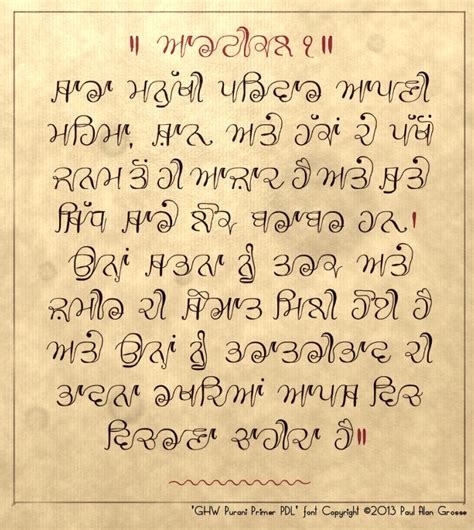 ॥ ਆਰਟੀਕਲ ੧॥
ਸਾਰਾ ਮਨੁੱਖੀ ਪਰਿਵਾਰ ਆਪਣੀ
ਮਹਿਮਾ, ਸ਼ਾਨ ਅਤੇ ਹੱਕਾਂ ਦੇ ਪੱਖੋਂ
ਜਨਮ ਤੋਂ ਹੀ ਆਜ਼ਾਦ ਹੈ ਅਤੇ ਸੁਤੇ
ਸਿੱਧ ਸਾਰੇ ਲੋਕ ਬਰਾਬਰ ਹਨ।
ਉਨ੍ਹਾਂ ਸਭਨਾ ਨੂੰ ਤਰਕ ਅਤੇ
ਜ਼ਮੀਰ ਦੀ ਸੌਗਾਤ ਮਿਲੀ ਹੋਈ ਹੈ
ਅਤੇ ਉਨ੍ਹਾਂ ਨੂੰ ਭਰਾਤਰੀਭਾਵ ਦੀ
ਭਾਵਨਾ ਰਖਦਿਆਂ ਆਪਸ ਵਿਚ
ਵਿਚਰਣਾ ਚਾਹੀਦਾ ਹੈ॥
"GHW Purani Primer PDL" font Copyright ©2013 Paul Alan Grosse